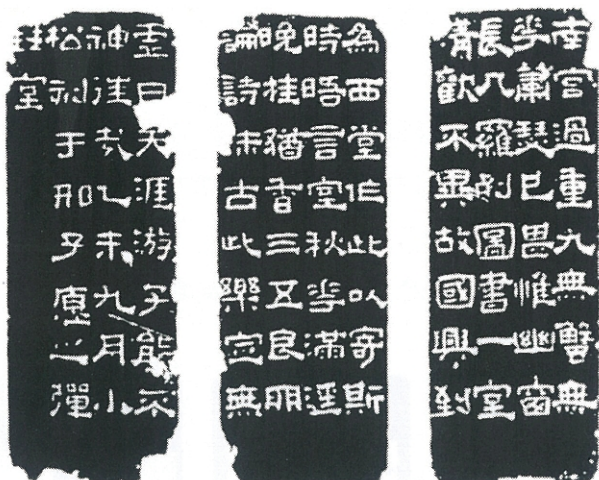 南宮過重九無蟹無
華蕭瑟已甚惟幽窗
長几羅列圖書一室
清歡不異故國興到
為西堂作此以寄斯
時晤言室秋華滿逕
晚桂猶香三五良朋
論詩味古此樂寧無
虛日天涯游子能不
神往哉乙未九月小
松刻于邢子愿之彈
琴室